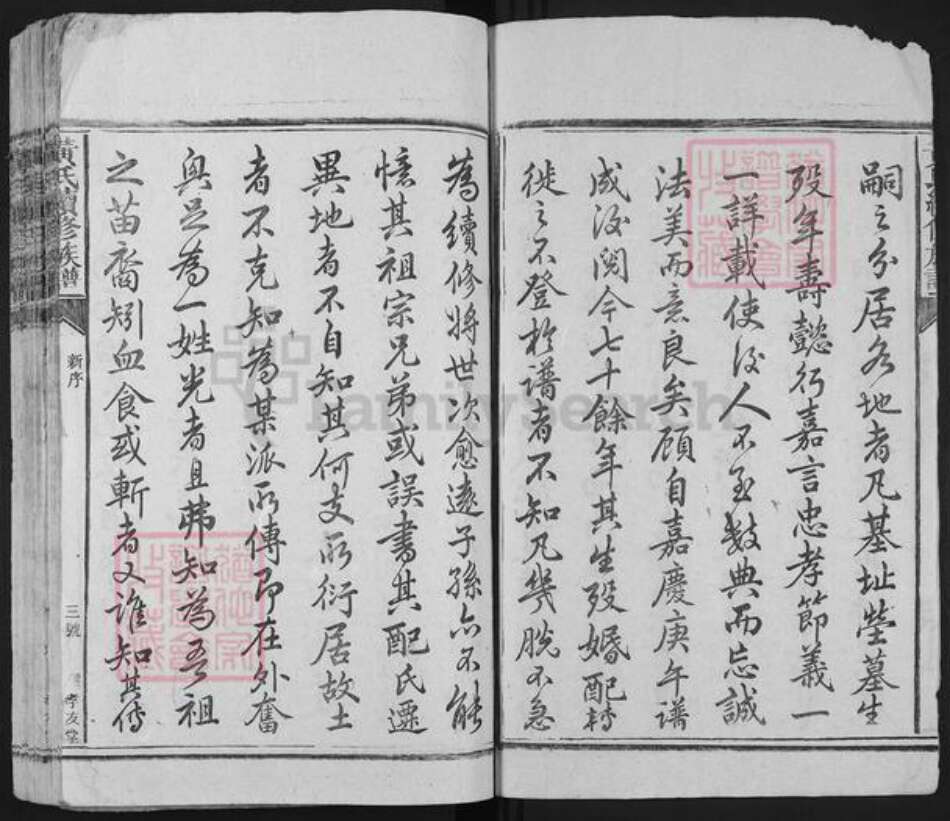 嗣之分居各地者凡基址塋墓生
歿年壽懿行嘉言忠孝節義一
一詳載使後人不至數典而忘誠
法美而意良矣顧自嘉慶庚年譜
成後閱今七十餘年其生歿婚配轉
徙之不登於譜者不知凡幾脫不急
為續修將世次愈遠子孫亦不能
憶其祖宗兄弟或誤書其配氏遷
異地者不自知其何支所衍居故土
者不克知為某派所傳即在外奮
興足為一姓光者且弗知為吾祖
之苗裔矧血食或斬者又誰知其傳
黃氏續修族譜
新序
三號
孝友堂
FamilySearch